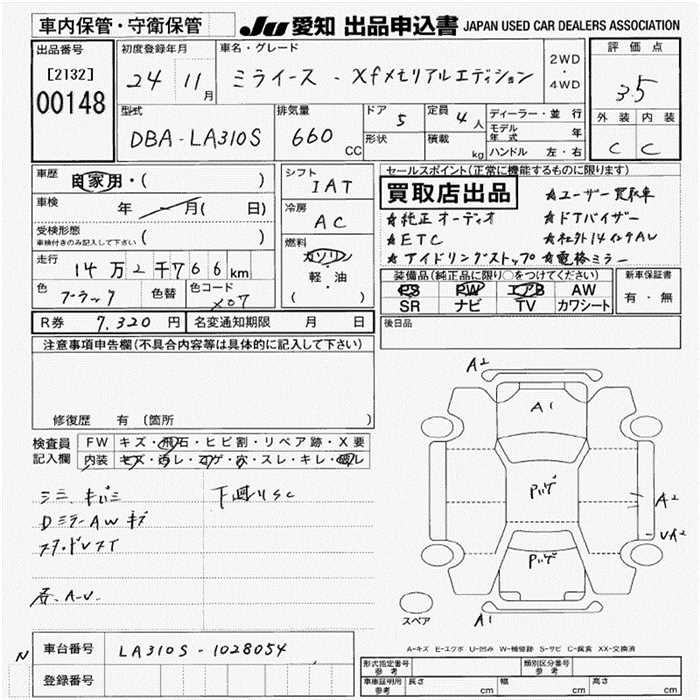 車内保管・守衛保管
JU 愛知 出品申込書 JAPAN USED CAR DEALERS ASSOCIATION
出品番号
[2132]
00148
初度登録年月
24 11月
車名・グレード
ミライース - Xfメモリアルエディション
2WD
・
4WD
評価点
3.5
外装 内装
C C
型式
DBA-LA310S
排気量
660 CC
ドア
5
定員
4人
形状
積載
kg
ディーラー・並行
モデル年式 年
ハンドル 左・右
車歴
自家用・( )
車検
年 月( 日)
受検形態
車検付きのみ記入して下さい ( )
走行
14万2千766km
色
ブラック
色替
色コード
X07
シフト
IAT
冷房
AC
燃料
ガソリン
軽・油
( )
R券 7,320円
名変通知期限 月 日
セールスポイント(正常に機能するものに限ります)
買取店出品
★ユーザー買取車
★純正オーディオ
★ドアバイザー
★ETC
★社外14インチAW
★アイドリングストップ
★電格ミラー
装備品(純正品に限り○をつけてください)
PS PW エアB AW
SR ナビ TV カワシート
新車保証書
有・無
後日品
注意事項申告欄(不具合内容等は具体的に記入して下さい)
修復歴 有 〔箇所 〕
検査員
記入欄
FW キズ・飛石・ヒビ割・リペア跡・X要
内装 キズ・汚レ・コゲ・穴・スレ・キレ・
下廻りSC
A2
A1
A2
A2
A1
スペア
A-キズ E-エクボ U-凹み W-補修跡 S-サビ C-腐食 XX-交換済
N
車台番号
LA310S-1028054
登録番号
形式指定番号
参考
類別区分番号
参考
車庫証明用
参考
長さ cm 幅 cm 高さ cm